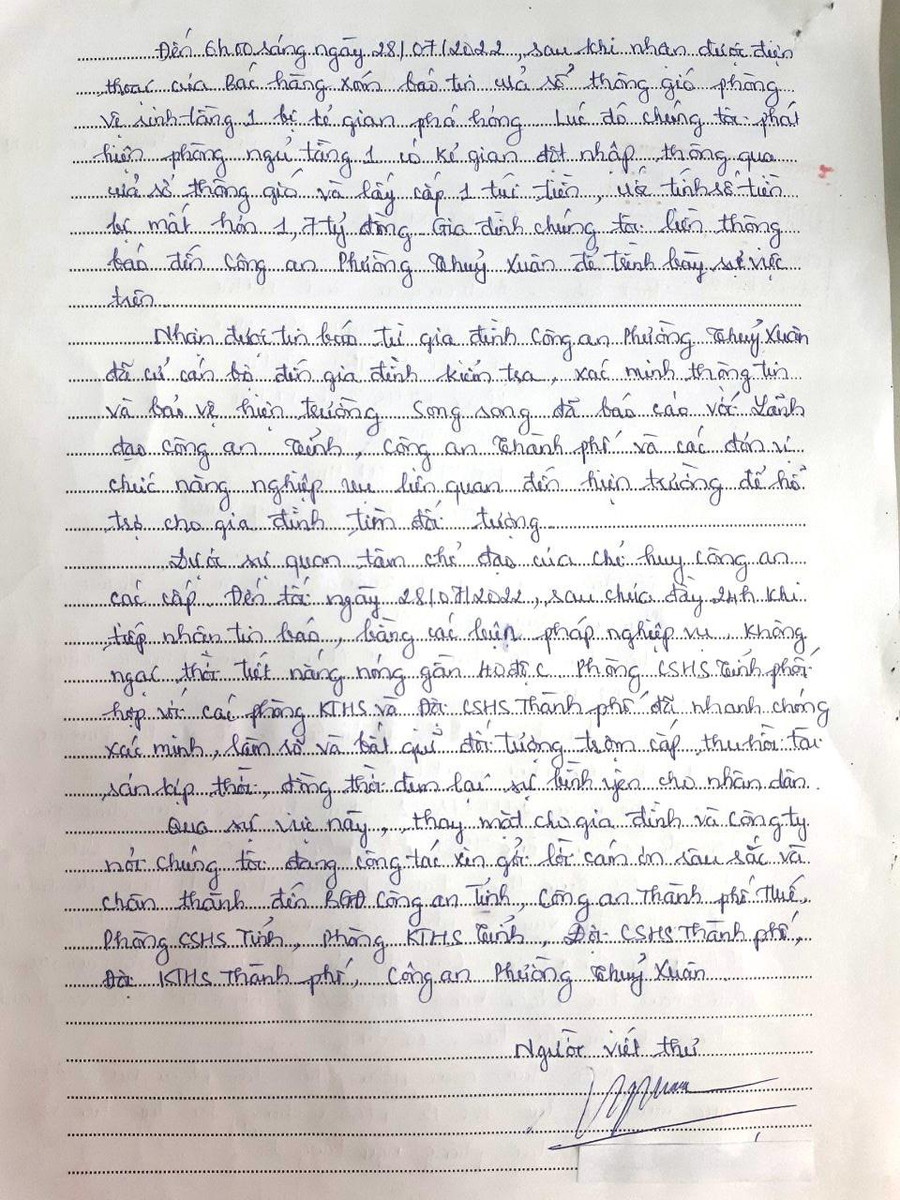 Đến 6h00 sáng ngày 28/07/2022, sau khi nhận được điện
thoại của Bác hàng xóm báo tin cửa sổ thông gió phòng
vệ sinh tầng 1 bị kẻ gian phá hỏng. Lúc đó chúng tôi phát
hiện phòng ngủ tầng 1 có kẻ gian đột nhập thông qua
cửa sổ thông gió và lấy cắp 1 túi tiền, ước tính số tiền
bị mất hơn 1,7 tỷ đồng. Gia đình chúng tôi liền thông
báo đến Công an Phường Thuỷ Xuân để trình bày sự việc
trên.
Nhận được tin báo từ gia đình Công an Phường Thuỷ Xuân
đã cử cán bộ đến gia đình kiểm tra, xác minh thông tin
và bảo vệ hiện trường. Song song đã báo cáo với Lãnh
đạo công an Tỉnh, Công an Thành phố và các đơn vị
chức năng nghiệp vụ liên quan đến hiện trường để hổ
trợ cho gia đình tìm đối tượng.
Dưới sự quan tâm chỉ đạo của chỉ huy Công an
các cấp. Đến tối ngày 28/07/2022, sau chưa đầy 24h khi
tiếp nhận tin báo, bằng các biện pháp nghiệp vụ không
ngại thời tiết nắng nóng gần 40 độ C. Phòng CSHS Tỉnh phối
hợp với các phòng KTHS và Đội CSHS Thành phố đã nhanh chóng
xác minh, làm rõ và bắt giữ đối tượng trộm cắp, thu hồi tài
sản kịp thời, đồng thời đem lại sự bình yên cho nhân dân.
Qua sự việc này, thay mặt cho gia đình và Công ty
nơi chúng tôi đang công tác xin gởi lời cảm ơn sâu sắc và
chân thành đến BGĐ Công an Tỉnh, Công an Thành phố Huế,
Phòng CSHS Tỉnh, Phòng KTHS Tỉnh, Đội CSHS Thành phố,
Đội KTHS Thành phố, Công an Phường Thuỷ Xuân.
Người viết thư